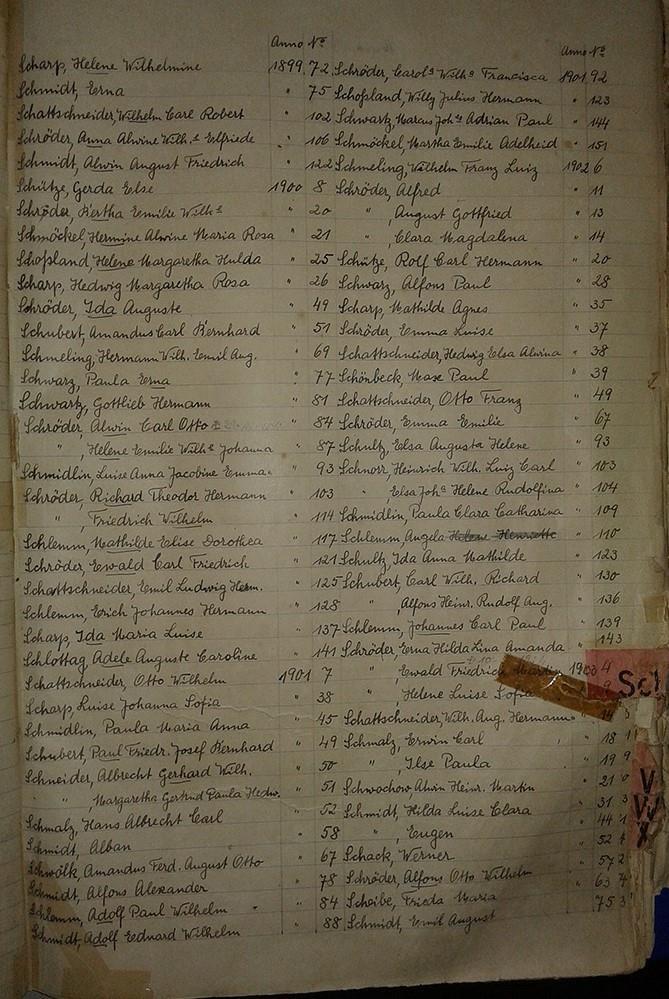 Anno Nº
Scharp, Helene Wilhelmine 1899 72
Schmidt, Erna " 75
Schattschneider, Wilhelm Carl Robert " 102
Schröder, Anna Alwine Wilhᵉ Elfriede " 106
Schmidt, Alwin August Friedrich " 122
Schütze, Gerda Else 1900 8
Schröder, Bertha Emilie Wilhᵉ " 20
Schmöckel, Hermine Alwine Maria Rosa " 21
Schoßland, Helene Margaretha Hulda " 25
Scharp, Hedwig Margaretha Rosa " 26
Schröder, Ida Auguste " 49
Schubert, Amandus Carl Bernhard " 51
Schmeling, Hermann Wilh. Emil Aug. " 69
Schwarz, Paula Erna " 77
Schwartz, Gottlieb Hermann " 81
Schröder, Alwin Carl Otto " 84
" , Helene Emilie Wilhᵉ Johanna " 87
Schmidlin, Luise Anna Jacobine Emma " 93
Schröder, Richard Theodor Hermann " 103
" , Friedrich Wilhelm " 114
Schlemm, Mathilde Elise Dorothea " 117
Schröder, Ewald Carl Friedrich " 121
Schattschneider, Emil Ludwig Herm. " 125
Schlemm, Erich Johannes Hermann " 128
Scharp, Ida Maria Luise " 137
Schlottag, Adele Auguste Caroline " 141
Schattschneider, Otto Wilhelm 1901 7
Scharp, Luise Johanna Sofia " 38
Schmidlin, Paula Maria Anna " 45
Schubert, Paul Friedr. Josef Bernhard " 49
Schneider, Albrecht Gerhard Wilh. " 50
" , Margaretha Gertrud Paula Hedw. " 51
Schmalz, Hans Albrecht Carl " 52
Schmidt, Alban " 58
Schwölk, Amandus Ferd. August Otto " 67
Schmidt, Alfons Alexander " 78
Schlemm, Adolf Paul Wilhelm " 84
Schmidt, Adolf Eduard Wilhelm " 88
Anno Nº
Schröder, Carolᵃ Wilhᵃ Francisca 1901 92
Schoßland, Willy Julius Hermann " 123
Schwartz, Marcus Johˢ Adrian Paul " 144
Schmöckel, Martha Emilie Adelheid " 151
Schmeling, Wilhelm Franz Luiz 1902 6
Schröder, Alfred " 11
" , August Gottfried " 13
" , Clara Magdalena " 14
Schütze, Rolf Carl Hermann " 20
Schwarz, Alfons Paul " 28
Scharp, Mathilde Agnes " 35
Schröder, Emma Luise " 37
Schattschneider, Hedwig Elsa Alwina " 38
Schönbeck, Max Paul " 39
Schattschneider, Otto Franz " 49
Schröder, Emma Emilie " 67
Schultz, Elsa Augusta Helene " 93
Schnorr, Heinrich Wilh. Luiz Carl " 103
" Elsa Johᵃ Helene Rudolfina " 104
Schmidlin, Paula Clara Catharina " 109
Schlemm, Angela Helene Henriette " 110
Schultz, Ida Anna Mathilde " 123
Schubert, Carl Wilh. Richard " 130
" , Alfons Heinr. Rudolf Aug. " 136
Schlemm, Johannes Carl Paul " 139
Schröder Erna Hilda Lina Amanda " 143
" Ewald Friedrich Martin 1903 4
" , Helene Luise Sofia
Schattschneider, Wilh. Aug. Hermann "
Schmalz, Erwin Carl 18
" , Ilse Paula 19
Schwochow, Alwin Heinr. Martin " 21
Schmidt, Hilda Luise Clara 31
" , Eugen 44
Schack, Werner 52
Schröder, Alfons Otto Wilhelm 57
Scheibe, Frieda Maria 63
Schmidt, Emil August 75